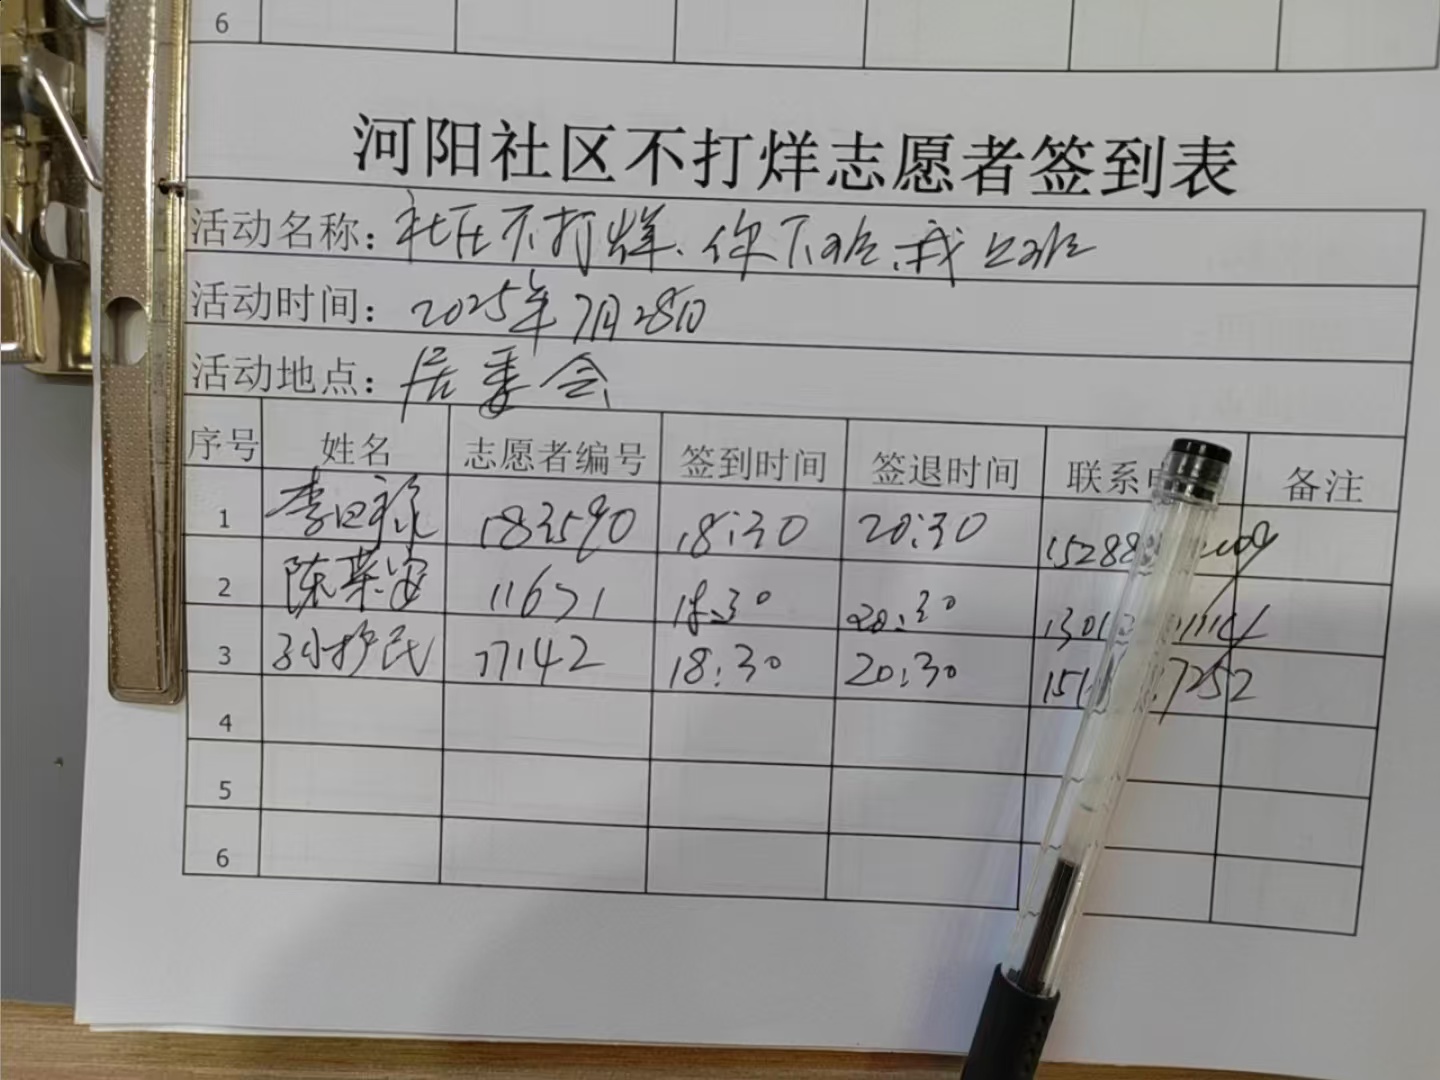 6
河阳社区不打烊志愿者签到表
活动名称：社区不打烊、你下班、我上班
活动时间：2025年7月28日
活动地点：居委会
序号 姓名 志愿者编号 签到时间 签退时间 联系 备注
1 183590 18:30 20:30
2 陈荣海 11671 18:30 20:30
3 孙护民 77142 18:30 20:30 7252
4
5
6